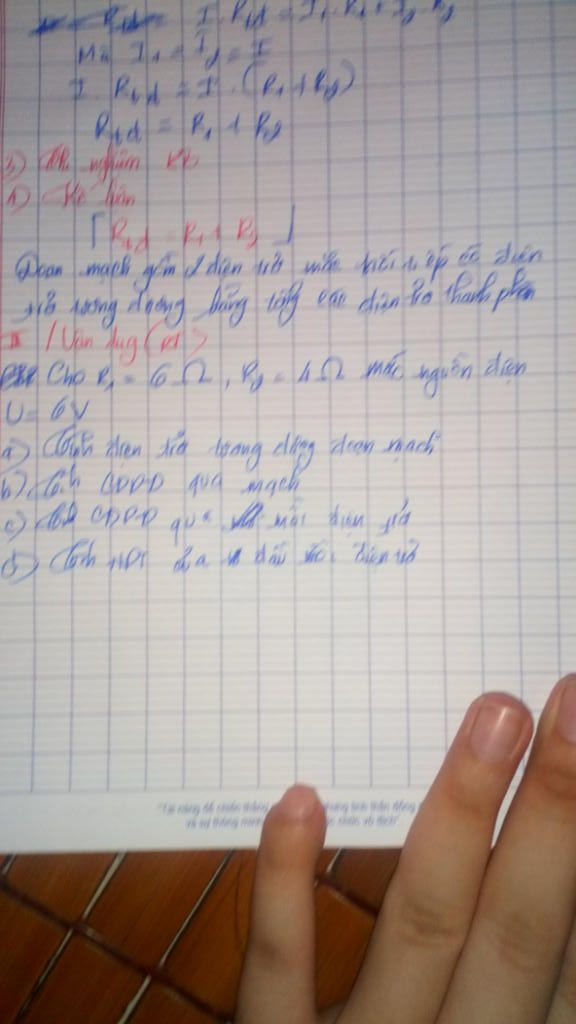 Rtđ = I . Rtđ = I1 . R1 + I2 . R2
Mà I1 = I2 = I
I . Rtđ = I . (R1 + R2)
Rtđ = R1 + R2
3) nghiệm
4) Kết luận
Rtđ = R1 + R2
Đoạn mạch gồm 2 điện trở mắc nối tiếp có điện
trở tương đương bằng tổng các điện trở thành phần
III / Vận dụng
Cho R1 = 6Ω, R2 = 4Ω mắc nguồn điện
U = 6V
a) Tính điện trở tương đương đoạn mạch
b) Tính CDDD qua mạch
c) Tính CDDD qua mỗi điện trở
d) Tính HĐT đầu mỗi điện trở
"Tài năng để chiến thắng tinh thần đồng
và sự thông minh chức vô địch"